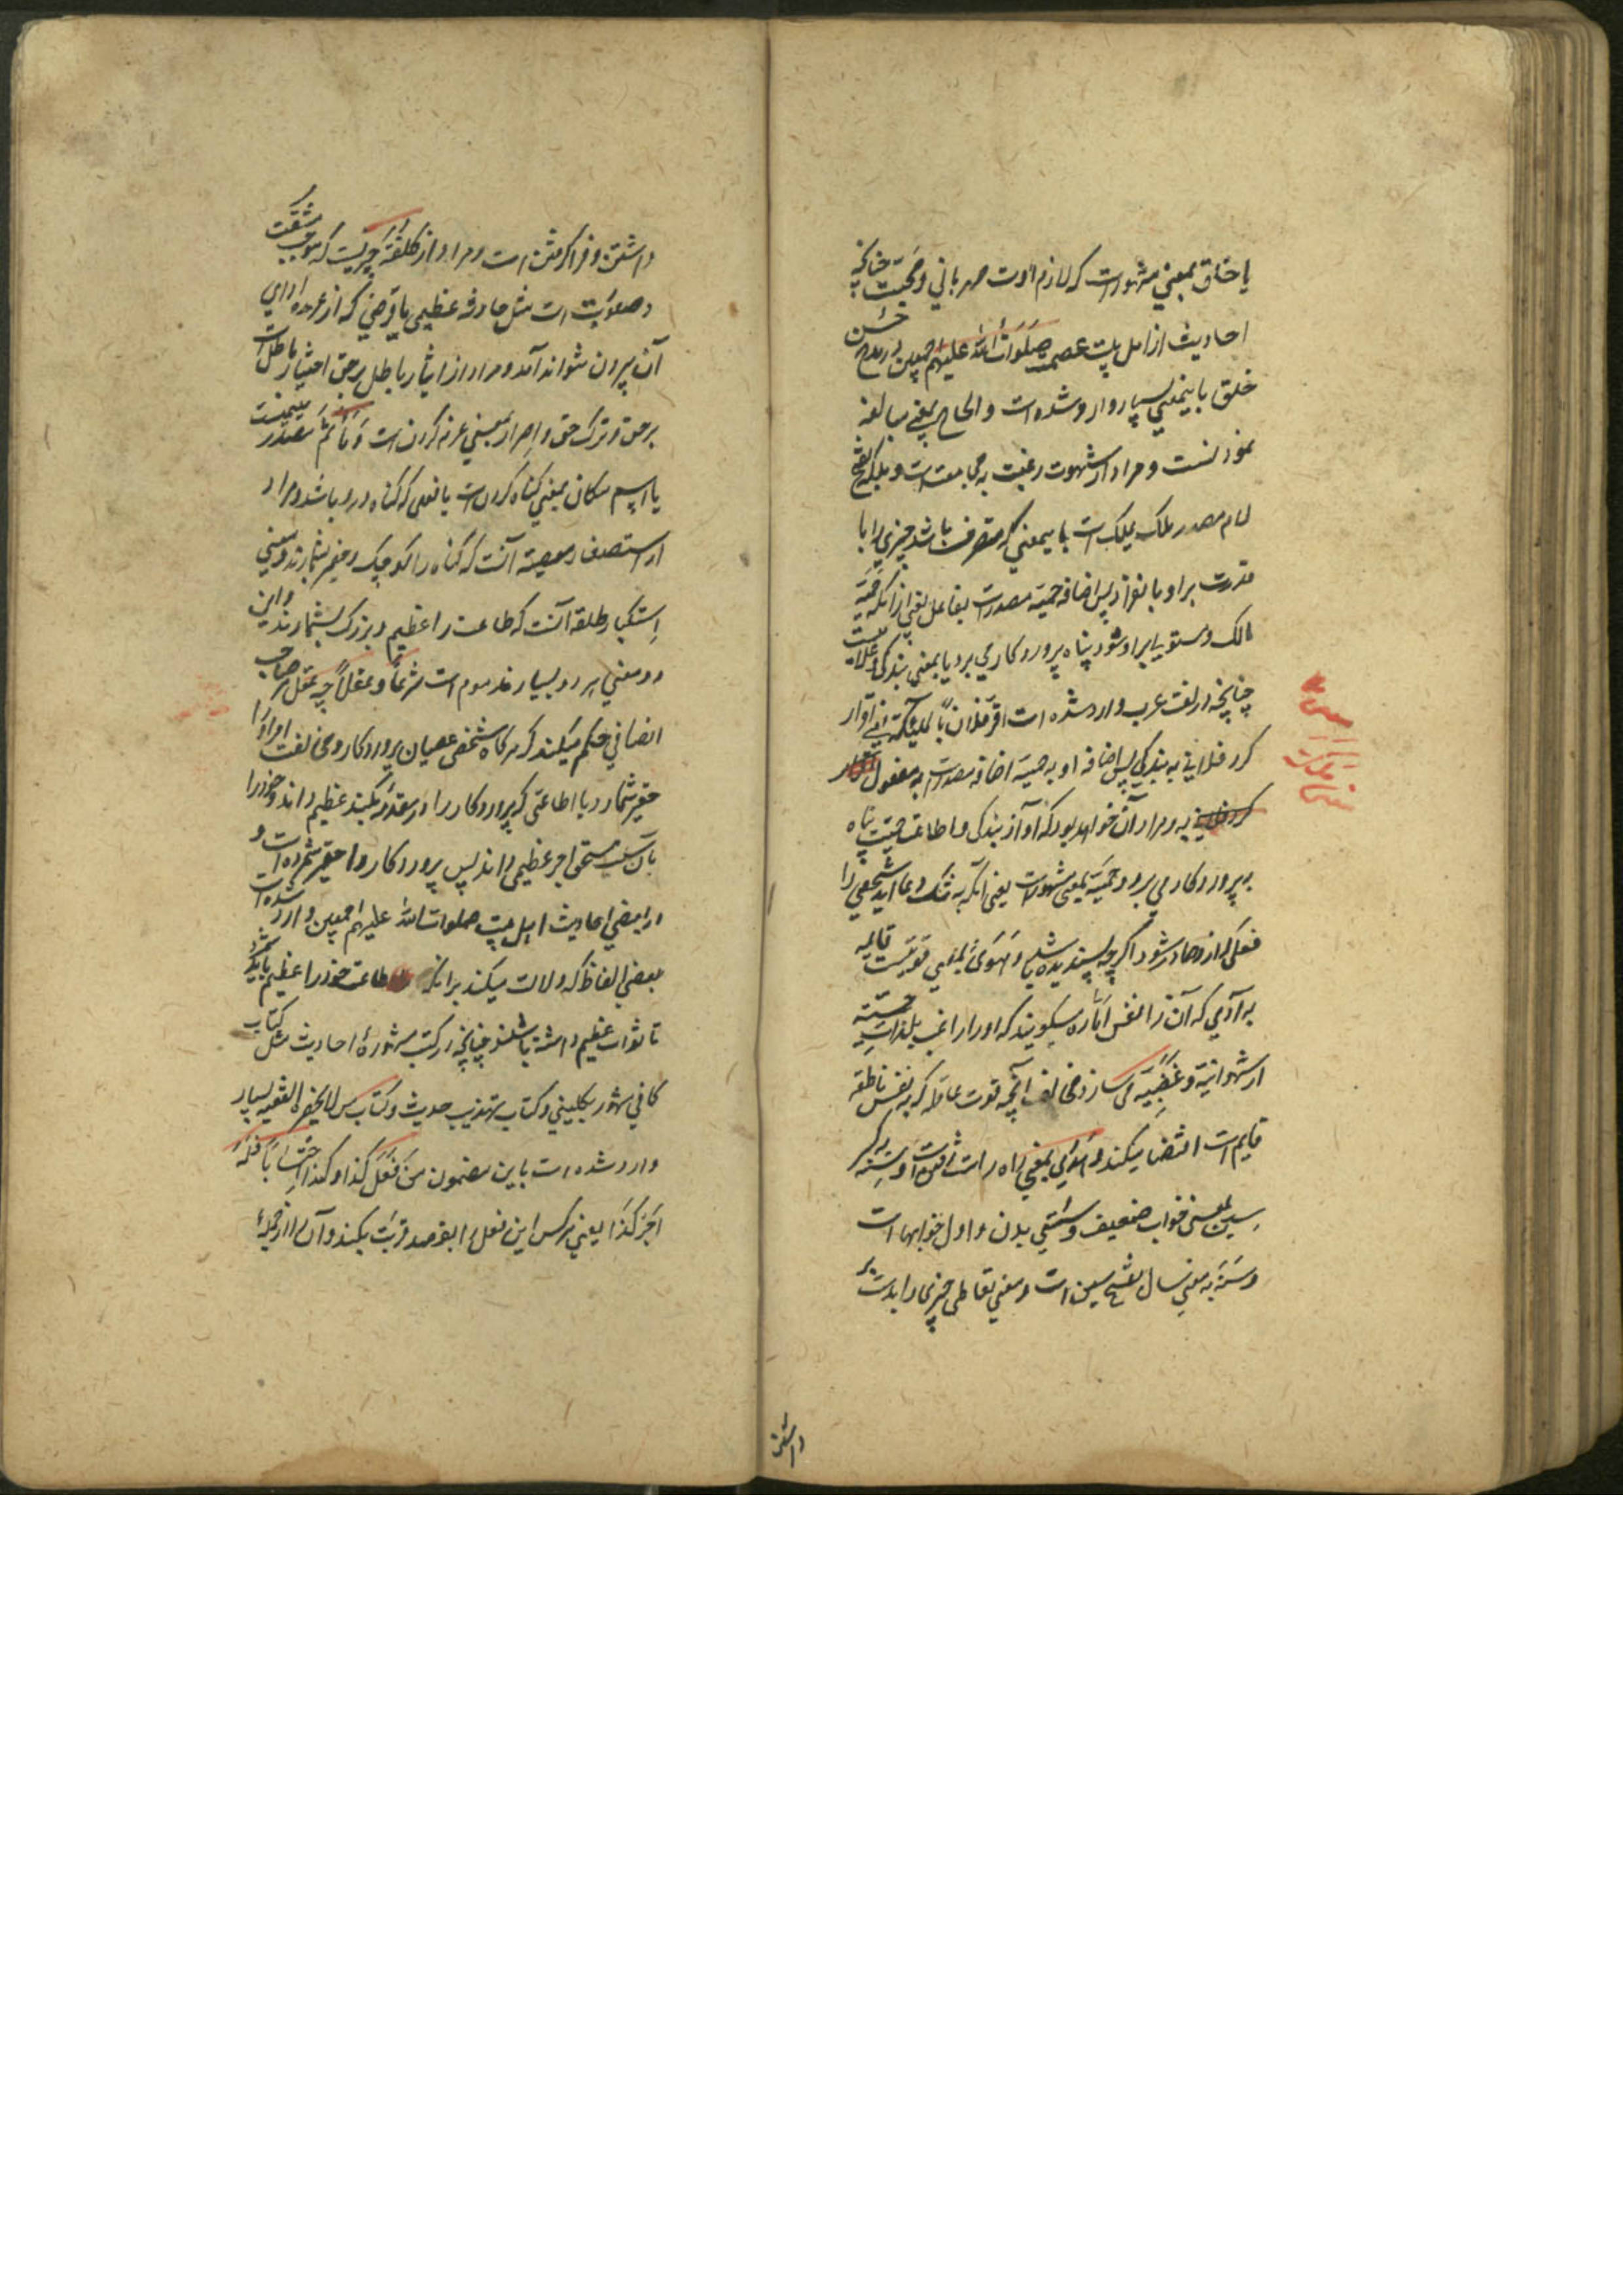 یا خلق بمعنی مشهورست که لازم اوست مهربانی و محبت چنانچه
احادیث از اهل بیت عصمت صلوات الله علیهم اجمعین در مدح حسن
خلق باینمعنی بسیار وارد شده است و الحاح بمعنی مبالغه
نمودنست و مراد از شهوت رغبت به مجامعتست و ملکه بفتح
لام مصدر ملک یملک است باینمعنی که متصرف باشد چیزی را با
قدرت بر او بانفراد پس اضافه حمیة مصدرست بفاعل یعنی از آنکه حمیة
مالک و مستولی بر او شود پناه بپروردکاری برد یا بمعنی بندکی و غلامیست
چنانچه در لغت عرب وارد شده است اقر فلان بالملکة یعنی اقرار
کرد فلانی به بندکی پس اضافه او به حمیة اضافه مصدرست به مفعول
به و مراد آن خواهد بود که او از بندکی و اطاعت حمیت پناه
به پروردکار می برد و حمیة بمعنی مشهورست یعنی آنکه به ننک و عار آید شخصی را
فعلی که از او صادر شود اگر چه پسندیده باشد و هوی بمعنی قوتیست قایمه
به آدمی که آن را نفس اماره میکویند که او را راغب بلذات حسیه
از شهوانیة و غضبیة می سازد و مخالف آنچه قوت عاقله که به نفس ناطقه
قایم است اقتضا میکند و هدی بمعنی راه راست یافتن است و سنه به کسر
سین بمعنی خواب ضعیف و سستی بدن و اول خوابها است
و سنة به معنی سال بفتح سین است و معنی تعاطی چیزی را بدست
داشتن
داشتن و فرا کرفتن است و مراد از کلفة چیزیست که موجب مشقت
و صعوبت است مثل حادثه عظیمی یا قرضی که از عهده ادای
آن بیرون نتواند آمد و مراد از ایثار باطل بر حق اختیار باطل است
بر حق و ترک حق و اصرار بمعنی عزم کردن است و مأثم مصدر میمیست
یا اسم مکان بمعنی کناه کردن است یا فعلی که کناه در او باشد و مراد
از استصغار معصیة آنست که کناه را کوچک و حقیر شمارند و معنی
استکبار طاعة آنست که طاعت را عظیم و بزرک بشمارند و این
دو معنی هر دو بسیار مذموم است شرعاً و عقلاً چه عقل هر صاحب
انصافی حکم میکند که هر کاه شخصی عصیان پروردکار و مخالفت اوامر او را
حقیر شمارد یا اطاعتی که پروردکار را در معتقد میکند عظیم داند و خود را
بآن سبب مستحق اجر عظیمی داند پس پروردکار را حقیر شمرده است و
در بعضی احادیث اهل بیت صلوات الله علیهم اجمعین وارد شده است
بعضی الفاظ که دلالت میکند بر آنکه طاعت خود را عظیم باید شمرد
تا ثواب عظیم داشته باشند چنانچه در کتب مشهوره احادیث مثل کتاب
کافی مشهور بکلینی و کتاب تهذیب حدیث و کتاب من لا یحضره الفقیه بسیار
وارد شده است باین مضمون من فعل کذا و کذا احتساباً فله
اجر کذا یعنی هر کس این فعل را بقصد قربت بکند و آن را از جمله